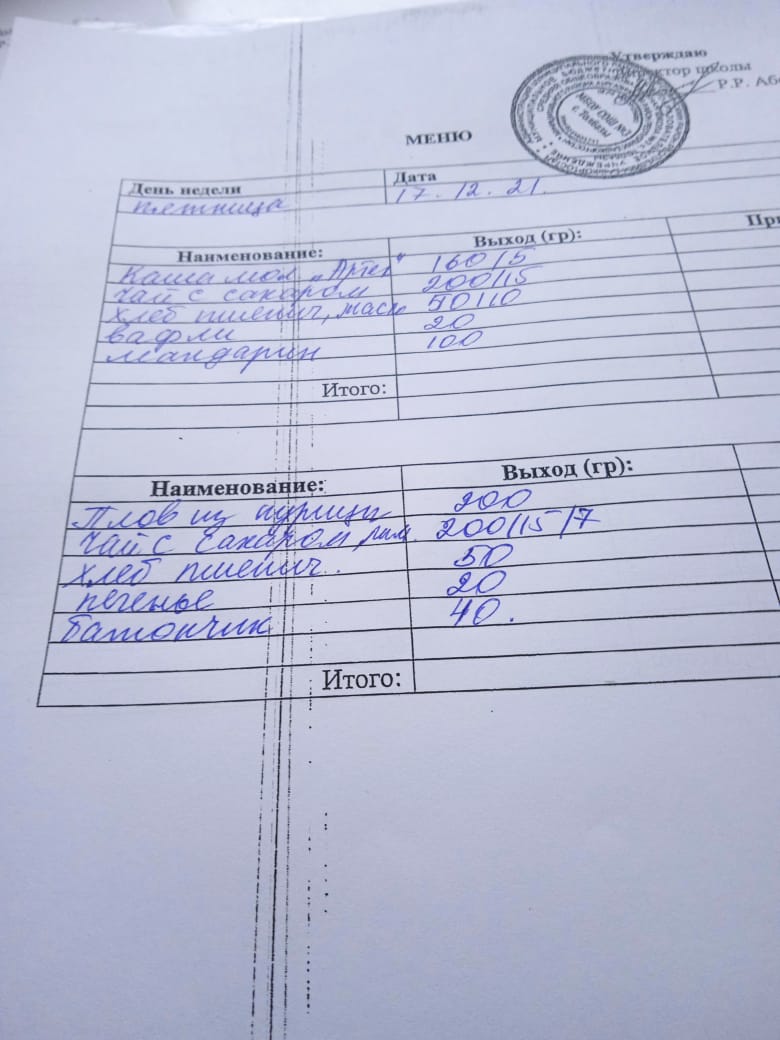 Утверждаю
директор школы
Р.Р. Або
МЕНЮ
День недели
Дата
пятница
17.12.21.
Наименование:
Выход (гр):
При
Каша мол „Артек"
160/5
чай с сахаром
200/15
хлеб пшенич, масло
50/10
вафли
20
мандарин
100
Итого:
Наименование:
Выход (гр):
Плов из курицы
200
чай с сахаром, лим.
200/15/7
хлеб пшенич.
50
печенье
20
батончик
40.
Итого: